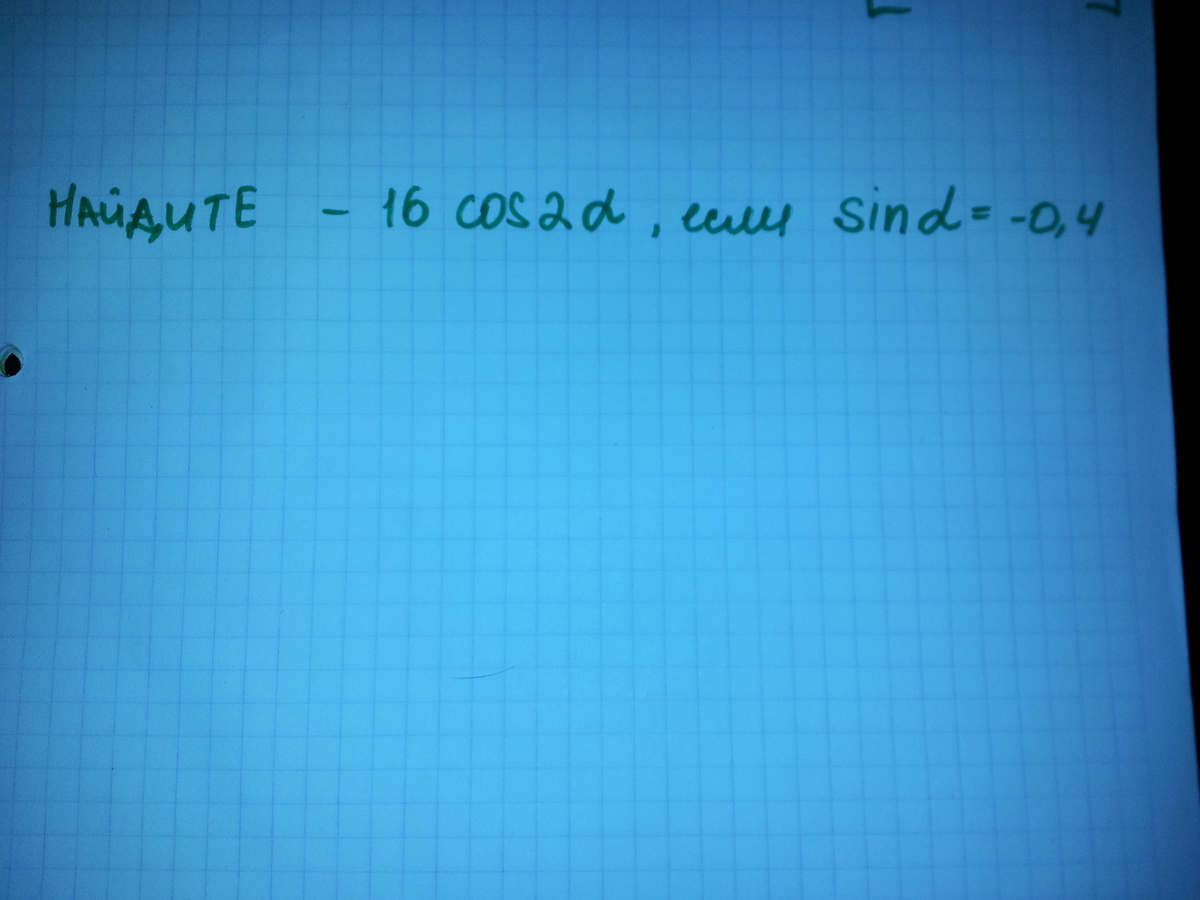 НАЙДИТЕ - 16 cos2α, если sinα = -0,4